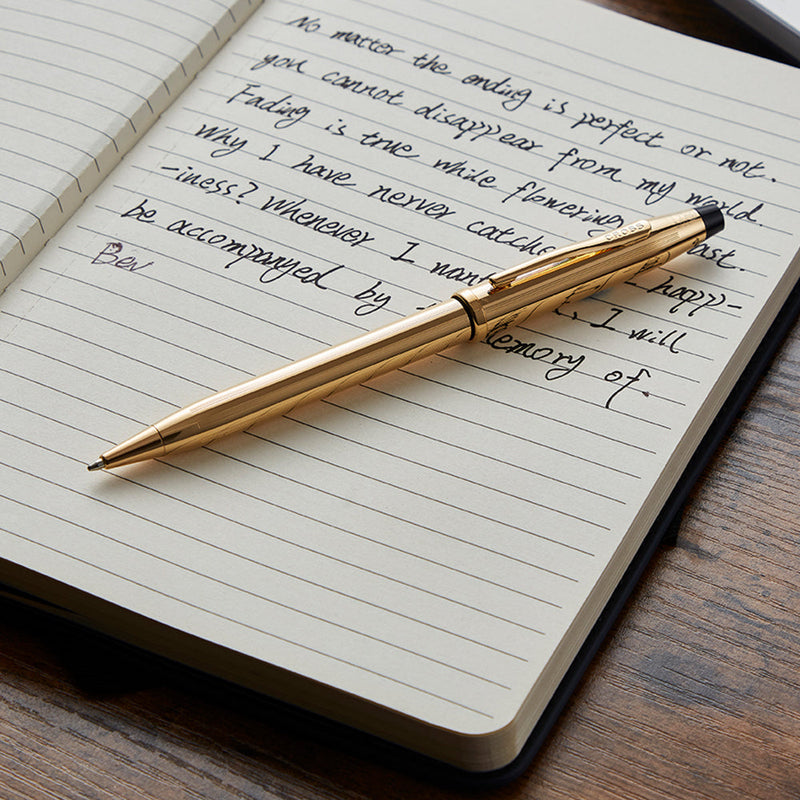 No matter the ending is perfect or not.
you cannot disappear from my world.
Fading is true while flowering ast.
Why I have nerver catche happ-
-iness? Whenever I want I will
be accompanyed by emory of.
Bev
CROSS